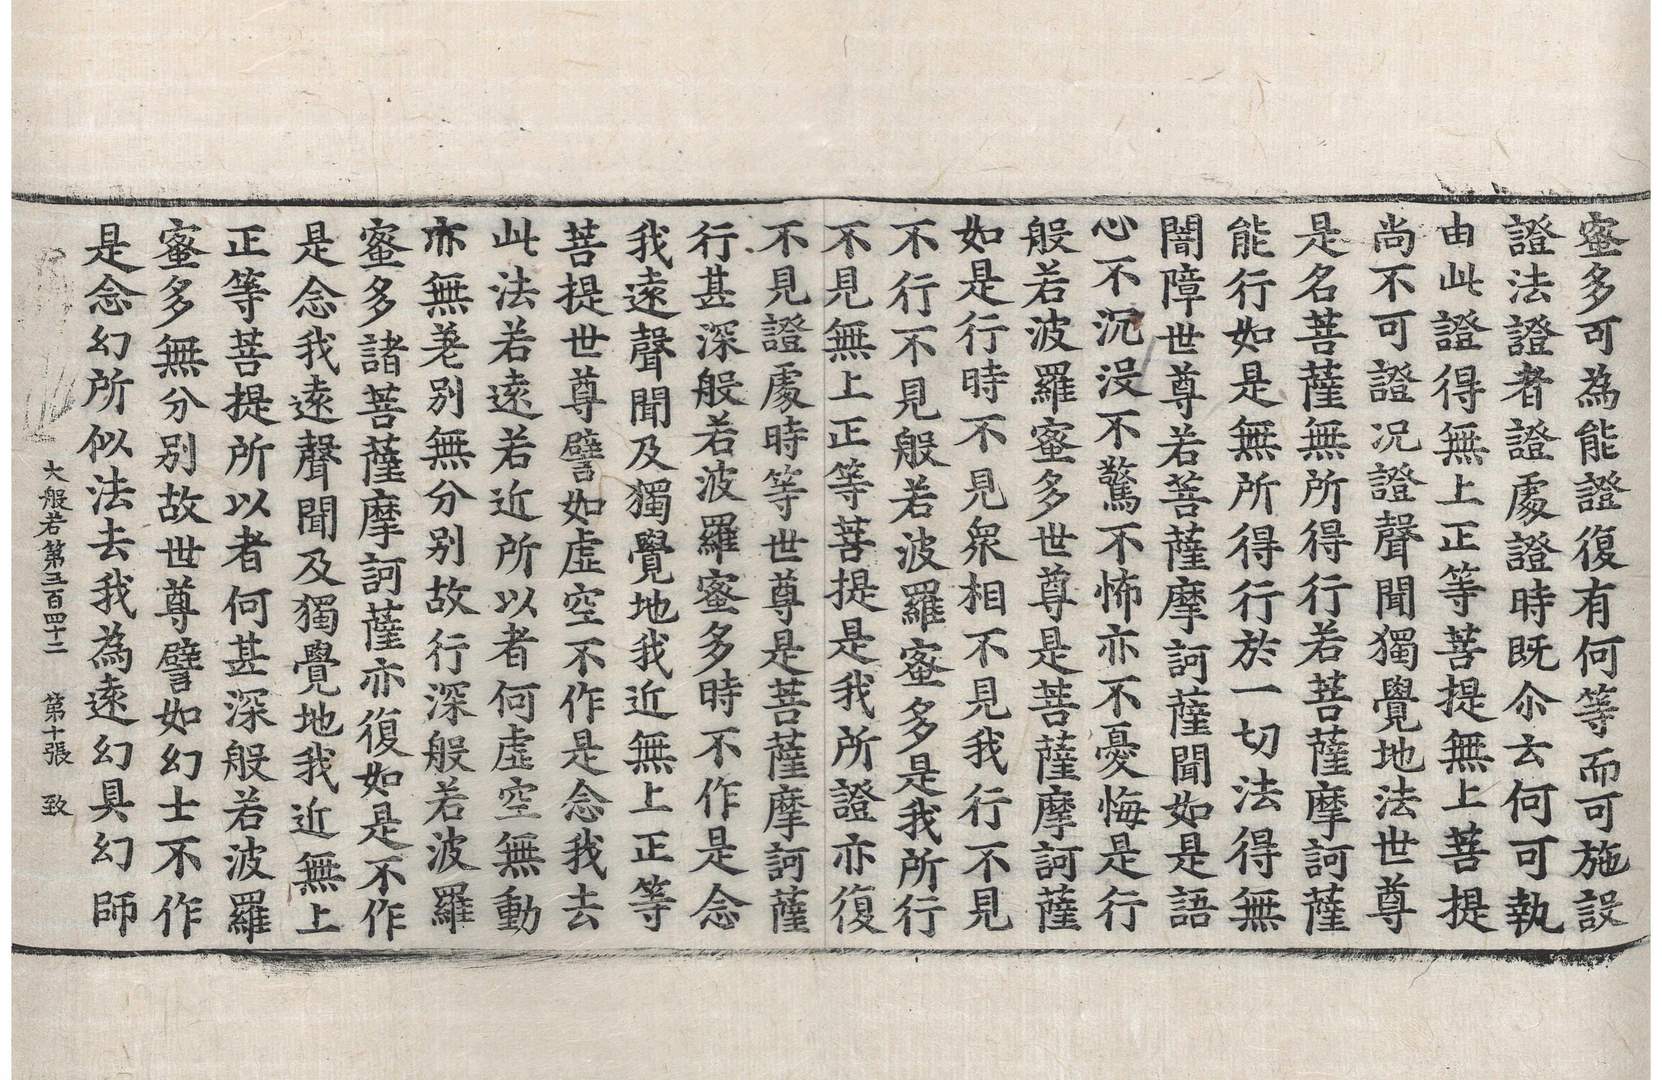 蜜多可為能證復有何等而可施設
證法證者證處證時既尒云何可執
由此證得無上正等菩提無上菩提
尚不可證況證聲聞獨覺地法世尊
是名菩薩無所得行若菩薩摩訶薩
能行如是無所得行於一切法得無
闇障世尊若菩薩摩訶薩聞如是語
心不沉沒不驚不怖亦不憂悔是行
般若波羅蜜多世尊是菩薩摩訶薩
如是行時不見衆相不見我行不見
不行不見般若波羅蜜多是我所行
不見無上正等菩提是我所證亦復
不見證處時等世尊是菩薩摩訶薩
行甚深般若波羅蜜多時不作是念
我遠聲聞及獨覺地我近無上正等
菩提世尊譬如虛空不作是念我去
此法若遠若近所以者何虛空無動
亦無差別無分別故行深般若波羅
蜜多諸菩薩摩訶薩亦復如是不作
是念我遠聲聞及獨覺地我近無上
正等菩提所以者何甚深般若波羅
蜜多無分別故世尊譬如幻士不作
是念幻所似法去我為遠幻具幻師
大般若第五百四十二 第十張 致